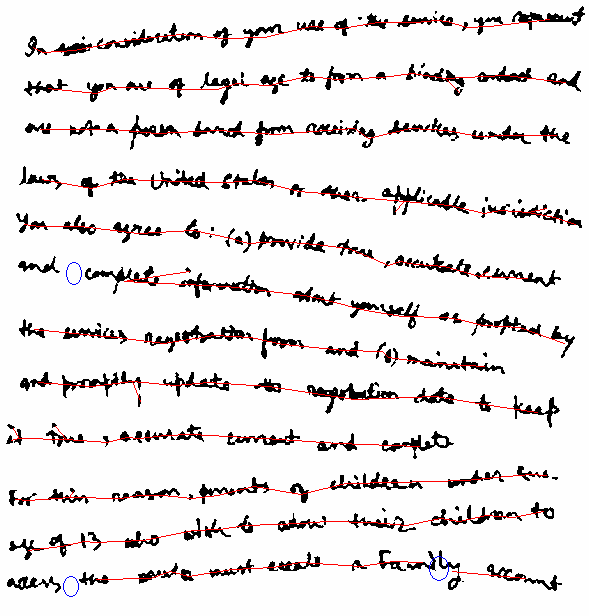 In consideration of your use of the service, you represent
that you are of legal age to from a binding contract and
are not a person bared from receiving services under the
laws of the United States or other applicable jurisdiction
You also agree to: (a) provide true, accurate, current
and complete information about yourself as prompted by
the services registration form and (b) maintain
and promptly update the registration data to keep
it true, accurate current and complete
For this reason, parents of children under the
age of 13 who wish to allow their children to
access the must create a Family account